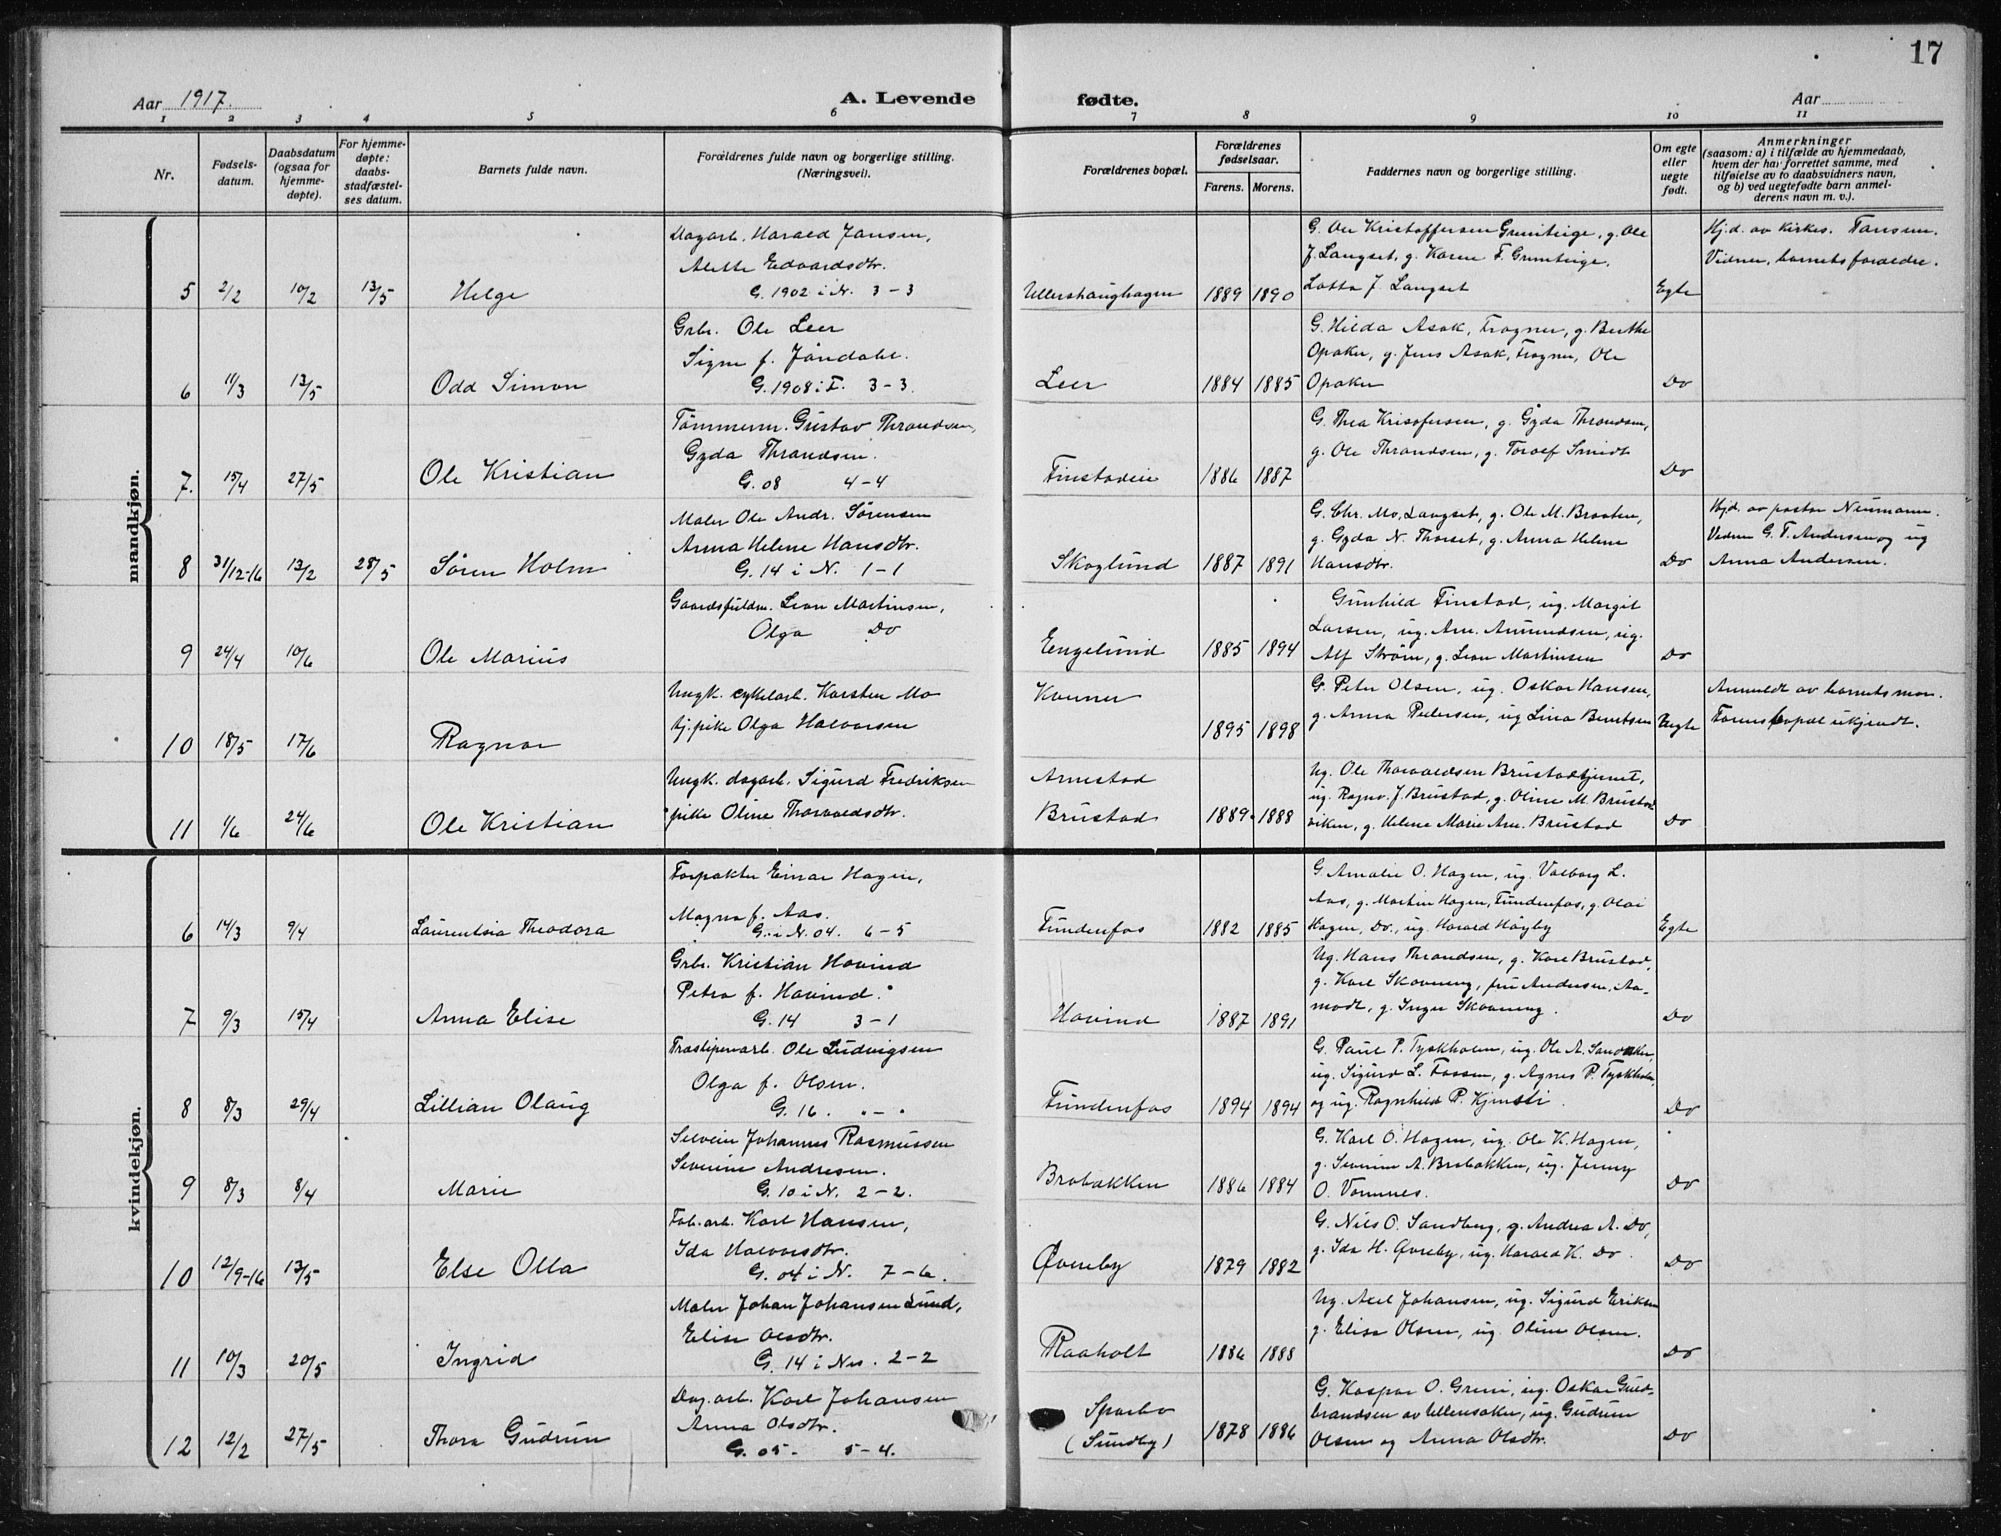 17
Aar 1917.
A. Levende
fødte.
Aar
1 2 3 4 5 6 7 8 9 10 11
Nr.
Fødsels-
datum.
Daabsdatum
(ogsaa for
hjemme-
døpte).
For hjemme-
døpte:
daabs-
stadfæstel-
ses datum.
Barnets fulde navn.
Forældrenes fulde navn og borgerlige stilling.
(Næringsvei).
Forældrenes bopæl.
Forældrenes
fødselsaar.
Farens. Morens.
Faddernes navn og borgerlige stilling.
Om egte
eller
uegte
født.
Anmerkninger
(saasom: a) i tilfælde av hjemmedaab,
hvem der har forrettet samme, med
tilføielse av to daabsvidners navn,
og b) ved uegtefødte barn anmel-
derens navn m. v.).
mandkjøn.
Dagarb. Harald Jansen,
Alette Edvardsdtr.
G. 1902 i N. 3-3
5 2/2 10/2 13/5 Helge
Ullershaughagen 1889 1890
G. Ole Kristoffersen Grimteige, g. Ole
J. Langset, g. Karen F. Grimteige.
Lotta J. Langset
Egte
Hj.d. av kirkes. Fansrm.
Vidner, barnets forældre.
Grbr. Ole Leer
Signe f. Jöndahl.
G. 1908 i F. 3-3.
6 11/3 13/5 Odd Simon
Leer 1884 1885
G. Hilda Asak, Frogner, g. Berthe
Opaker, g. Jens Asak, Frogner, Ole
Opaker
Do
Tömmerm. Gustav Throndsen,
Gyda Throndsen.
G. 08 4-4
7. 15/4 27/5 Ole Kristian
Finstadeie 1886 1887
G. Thea Kristofersen, g. Gyda Throndsen,
g. Ole Throndsen, g. Toralf Smidt
Do
Maler Ole Andr. Sörensen
Anna Helene Hansdtr.
G. 14 i N. 1-1
8 31/12-16 13/2 28/5 Sören Holm
Skoglund 1887 1891
G. Chr. Mo, Langset, g. Ole M. Braaten,
g. Gyda N. Thorset, g. Anna Helene
Hansdtr.
Do
Hj.d. av pastor Neumann.
Vidner G. T. Andersen og ug
Anna Andersen.
Gaardsfuldm. Leon Martinsen,
Olga Do
9 24/4 10/6 Ole Marius
Engelund 1885 1894
Gunhild Finstad, ug. Margit
Larsen, ug. Arn. Amundsen, ug.
Alf Ström, g. Leon Martinsen
Do
Ungk. cykelarb. Karsten Mo
tj.pike Olga Halvorsen
10 18/5 17/6 Ragnar
1895 1898
G. Peter Olsen, ug. Oskar Hansen,
g. Anna Pedersen, ug Lina Berntsen
Uegte
Anmeldt av barnets mor.
Farens bopæl ukjendt.
Ungk. dagarb. Sigurd Fredriksen
pike Oline Thorvaldsdtr.
11 1/6 24/6 Ole Kristian
Arnestad
Brustad 1889 1888
Ug. Ole Thorvaldsen Brustadtjernet,
ug. Ragnv. J. Brustad, g. Oline M. Brustad-
viken, g. Helene Marie Arn. Brustad
Do
kvindekjøn.
Forpakter Einar Hagen,
Magna f. Aas.
G. i N. 04. 6-5
6 14/3 9/4 Laurentsia Theodora
Fundenfos 1882 1885
G. Amalie O. Hagen, ug. Valborg L.
Aas, g. Martin Hagen, Fundenfos, g. Olai
Hagen, Do., ug. Harald Höyby
Egte
Grbr. Kristian Hovind
Petra f. Hovind.
G. 14 3-1
7 9/3 15/4 Anna Elise
Hovind 1887 1891
Ug. Hans Throndsen, g. Kare Brustad,
g. Karl Skovseng, fru Andersen, Aa-
modt, g. Inger Skovseng.
Do
Træsliperiarb. Ole Ludvigsen
Olga f. Olsen.
G. 16. " - "
8 8/3 29/4 Lillian Olaug
Fundenfos 1894 1894
G. Paul P. Tyskholm, ug. Ole A. Sandaker,
ug. Sigurd L. Fossen, g. Agnes P. Tyskholm,
og ug. Ragnhild P.
Do
Selveier Johannes Rasmussen
Severine Andresen.
G. 10 i N. 2-2.
9 8/3 8/4 Marie
Brobakken 1886 1884
G. Karl O. Hagen, ug. Ole K. Hagen,
g. Severine A. Brobakken, ug. Jenny
O. Vomnes.
Do
Fab.arb. Karl Hansen,
Ida Halvorsdtr.
G. 04 i N. 7-6.
10 12/9-16 13/5 Else Olla
Øvreby 1879 1882
G. Nils O. Sandberg, g. Andrea A. Do,
g. Ida H. Øvreby, ug. Harald K. Do.
Do
Maler Johan Johansen Lund,
Elise Olsdtr.
G. 14 i Nes. 2-2
11 10/3 20/5 Ingrid
Raaholt 1886 1888
Ug. Axel Johansen, ug. Sigurd Eriksen
g. Elise Olsen, ug. Oline Olsen.
Do
Dag.arb. Karl Johansen
Anna Olsdtr.
G. 05. 5-4.
12 12/2 27/5 Thora Gudrun
Sparbo
(Sundby) 1878 1886
G. Kaspar O. Greni, ug. Oskar Guld-
brandsen av Ullensaker, ug. Gudrun
Olsen og Anna Olsdtr.
Do